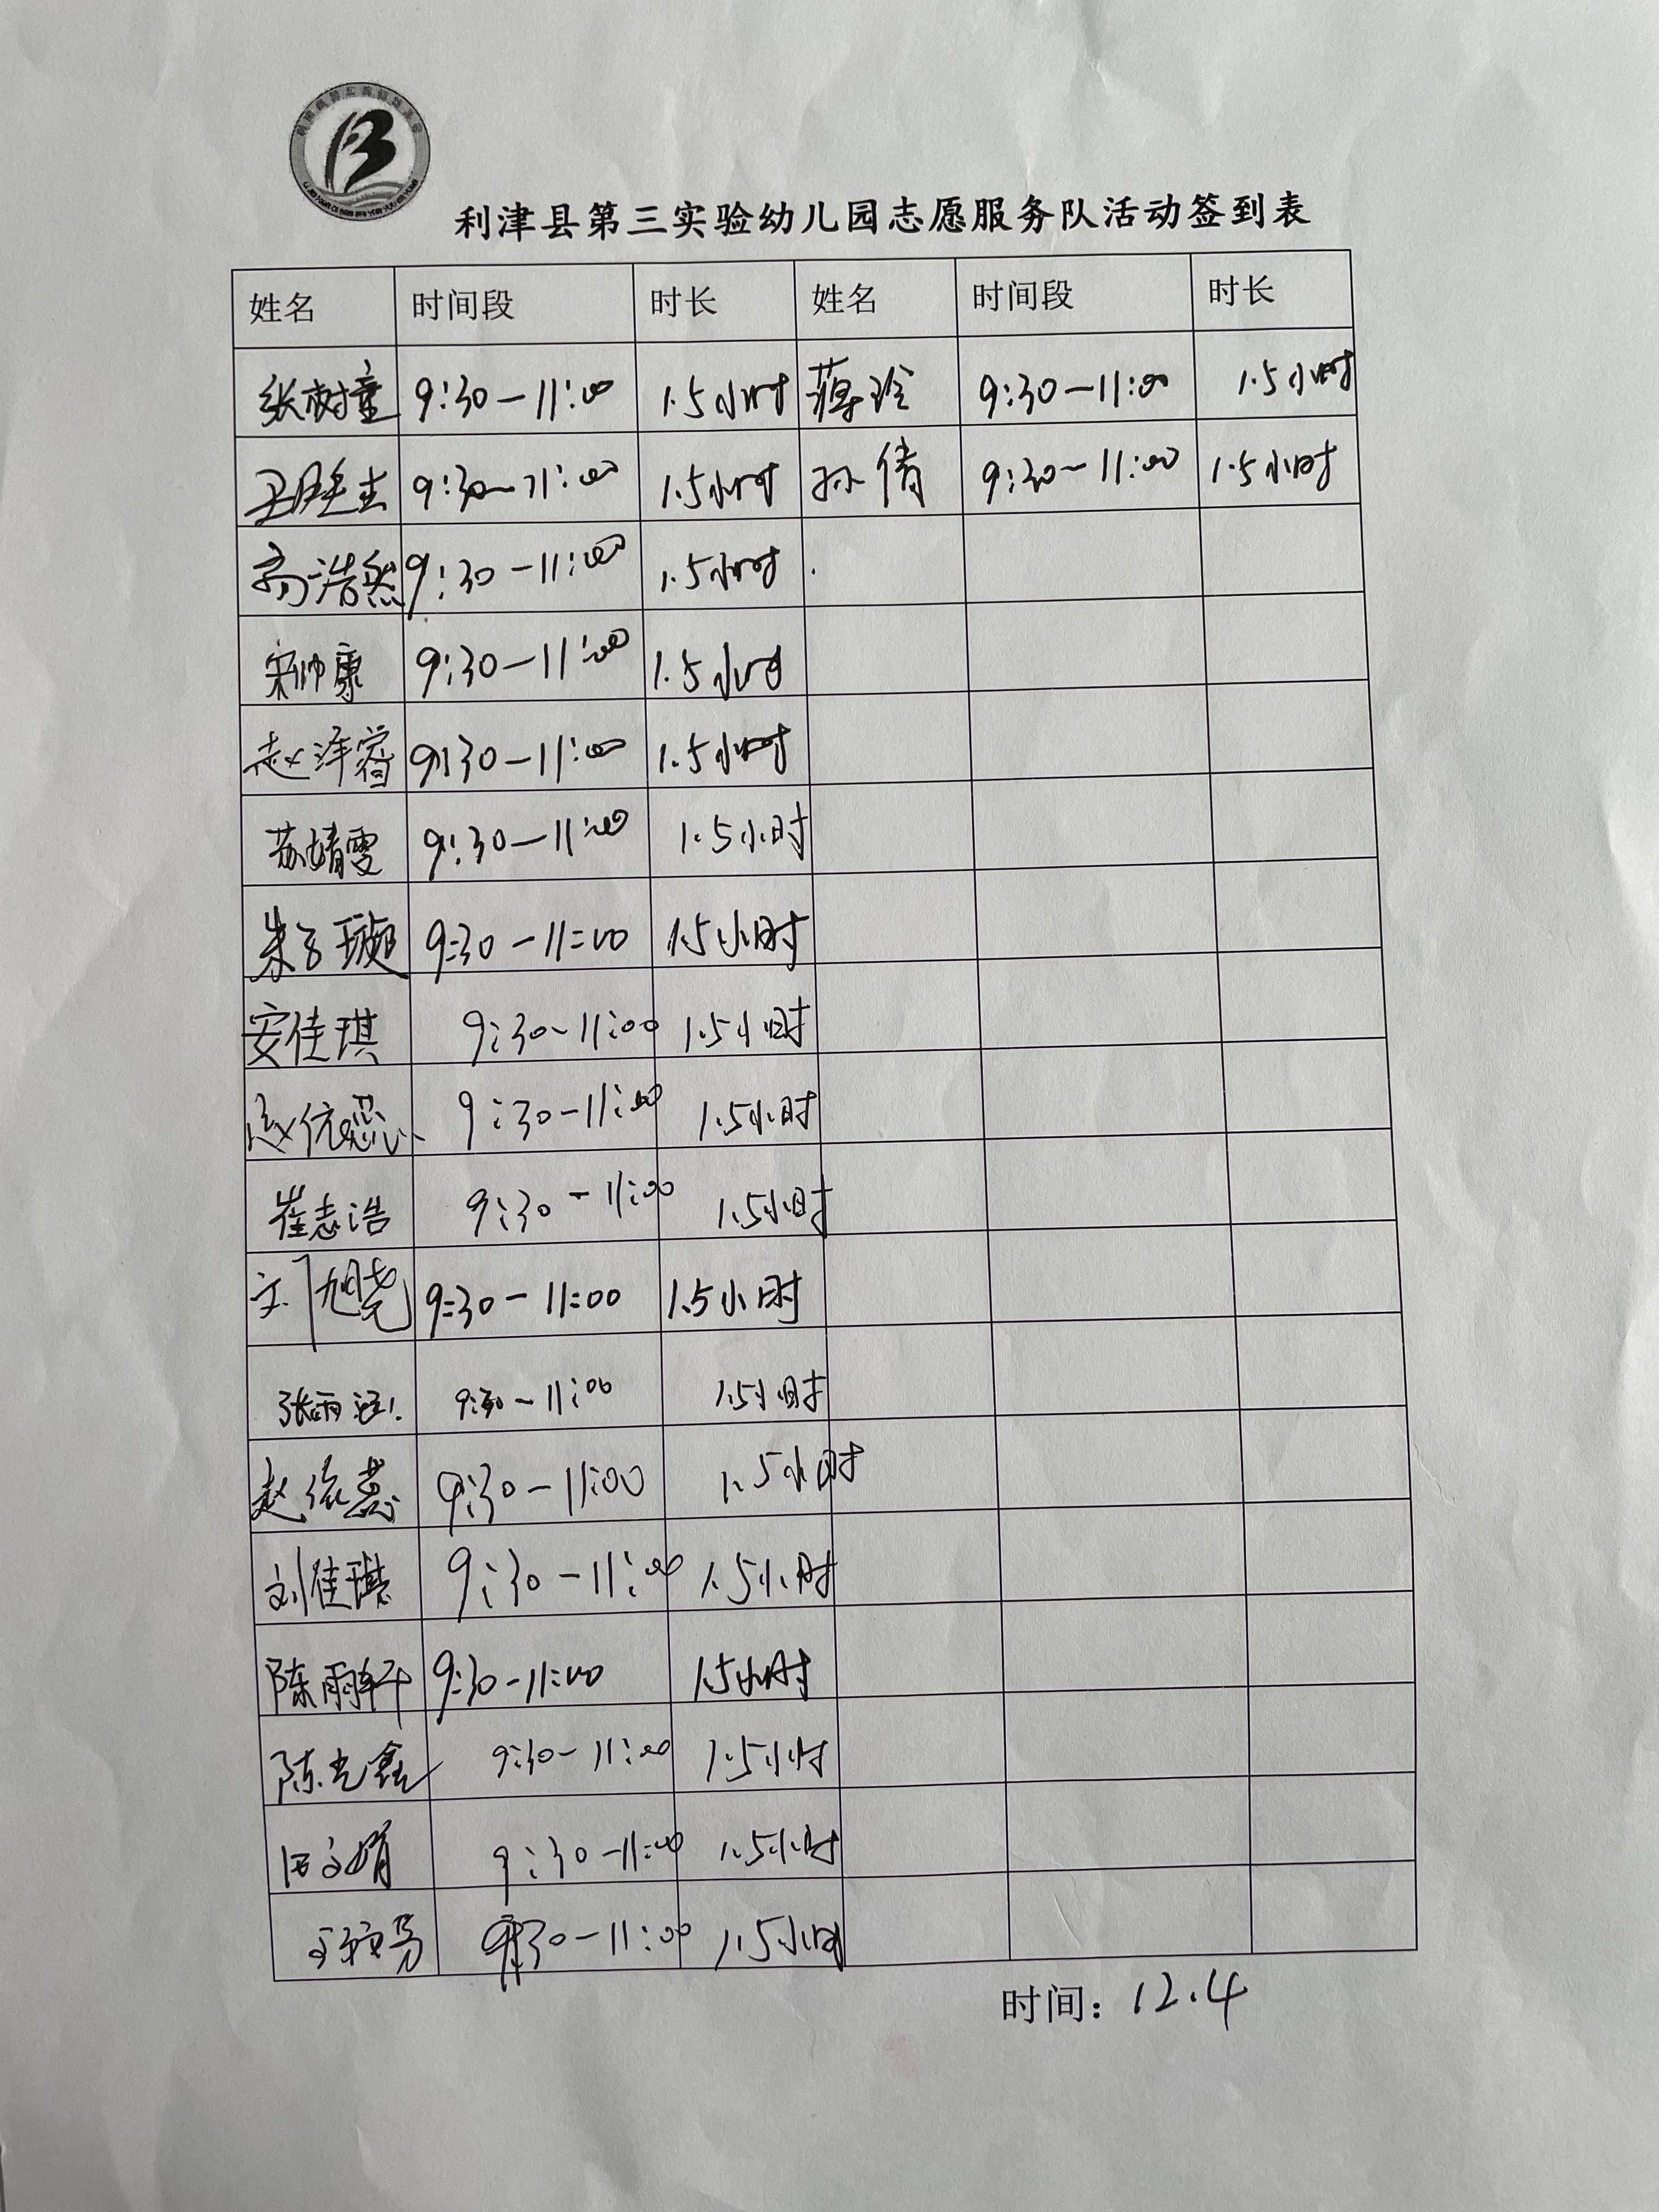 利津县第三实验幼儿园志愿服务队活动签到表
姓名 时间段 时长 姓名 时间段 时长
张树童 9:30-11:00 1.5小时 蒋玲 9:30-11:00 1.5小时
9:30-11:00 1.5小时 孙倩 9:30-11:00 1.5小时
高浩然 9:30-11:00 1.5小时
宋帅康 9:30-11:00 1.5小时
赵泽睿 9:30-11:00 1.5小时
苏婧雯 9:30-11:00 1.5小时
朱子璇 9:30-11:00 1.5小时
安佳琪 9:30-11:00 1.5小时
9:30-11:00 1.5小时
崔志浩 9:30-11:00 1.5小时
刘旭尧 9:30-11:00 1.5小时
张雨涵 9:30-11:00 1.5小时
赵依蕊 9:30-11:00 1.5小时
刘佳琪 9:30-11:00 1.5小时
陈雨轩 9:30-11:00 1.5小时
陈光鑫 9:30-11:00 1.5小时
田文娟 9:30-11:00 1.5小时
9:30-11:00 1.5小时
时间：12.4